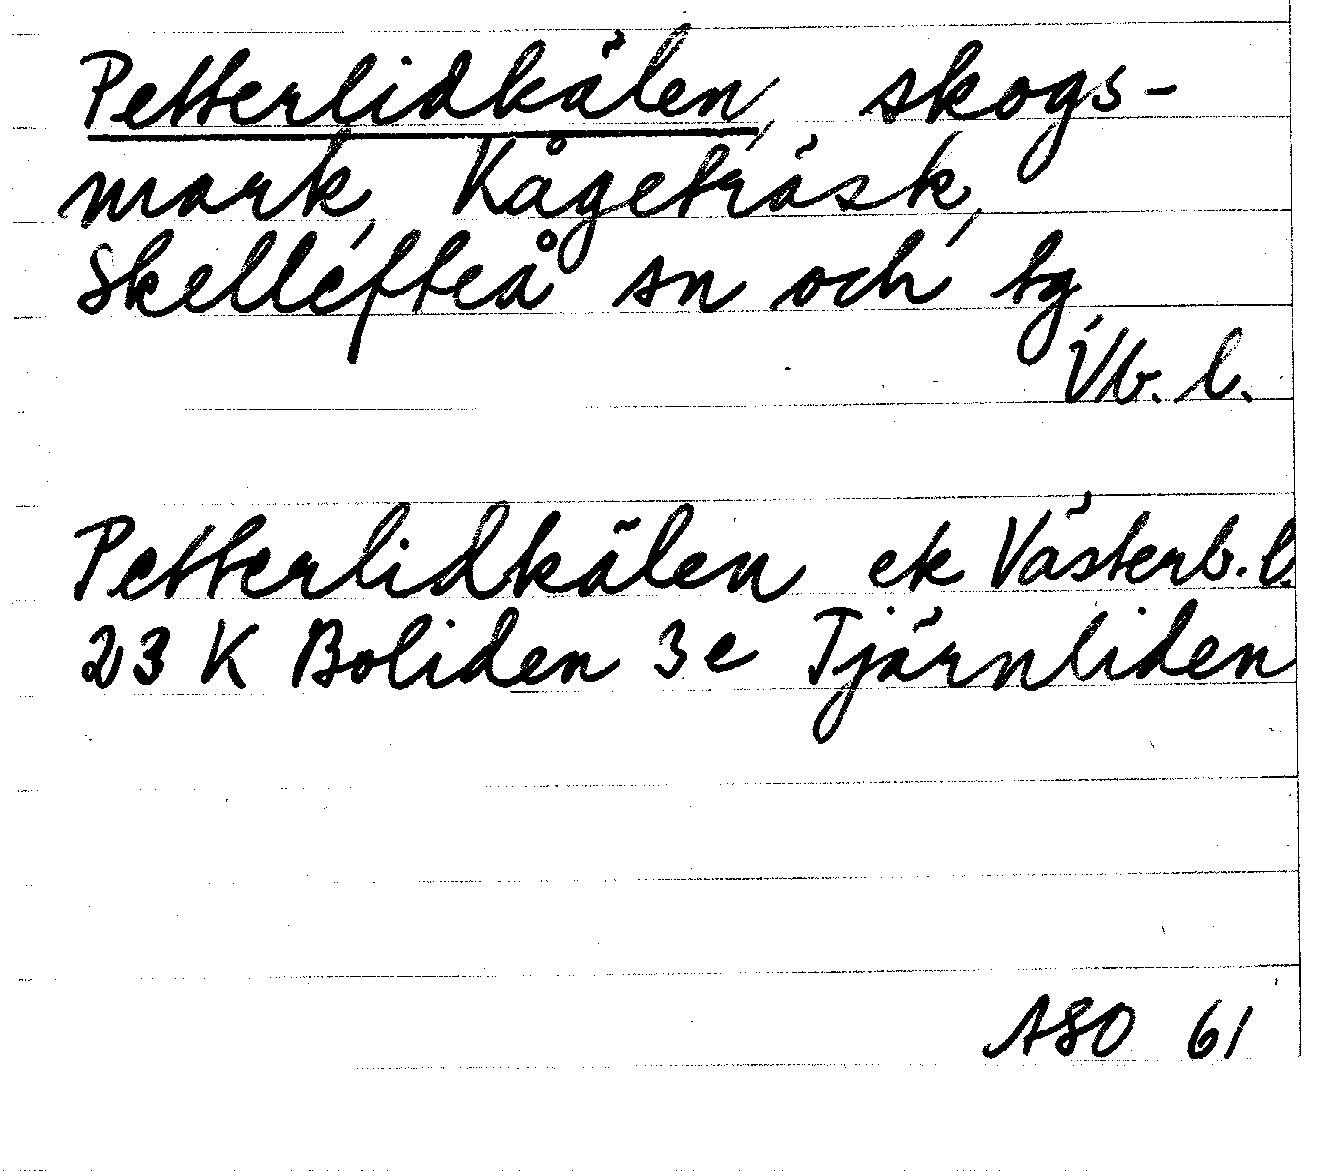 Petterlidkälen, skogs-
mark, Kågeträsk,
Skellefteå sn och tg
Vb. l.
Petterlidkälen ek Västerb. l.
23 K Boliden 3e Tjärnliden
ASO 61